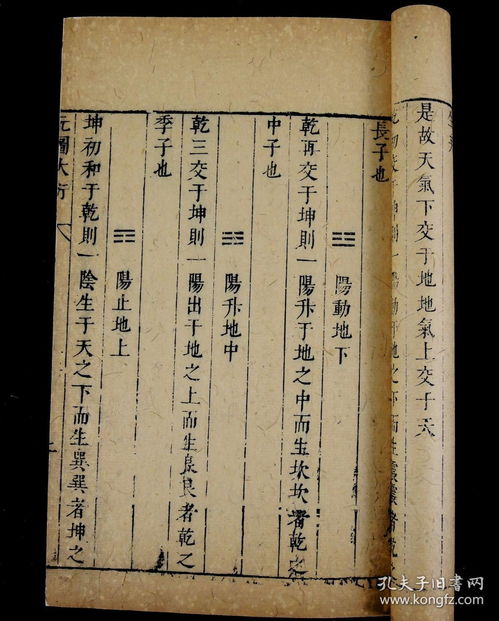 是故天氣下交于地地氣上交于天
初交于坤則一陽動于地之下而生震震者乾
長子也
陽動地下
乾再交于坤則一陽升于地之中而生坎坎者乾之
中子也
陽升地中
乾三交于坤則一陽出于地之上而生艮艮者乾之
季子也
陽止地上
坤初和于乾則一陰生于天之下而生巽巽者坤之
元圖大方
孔夫子旧书网
www.kongfz.com